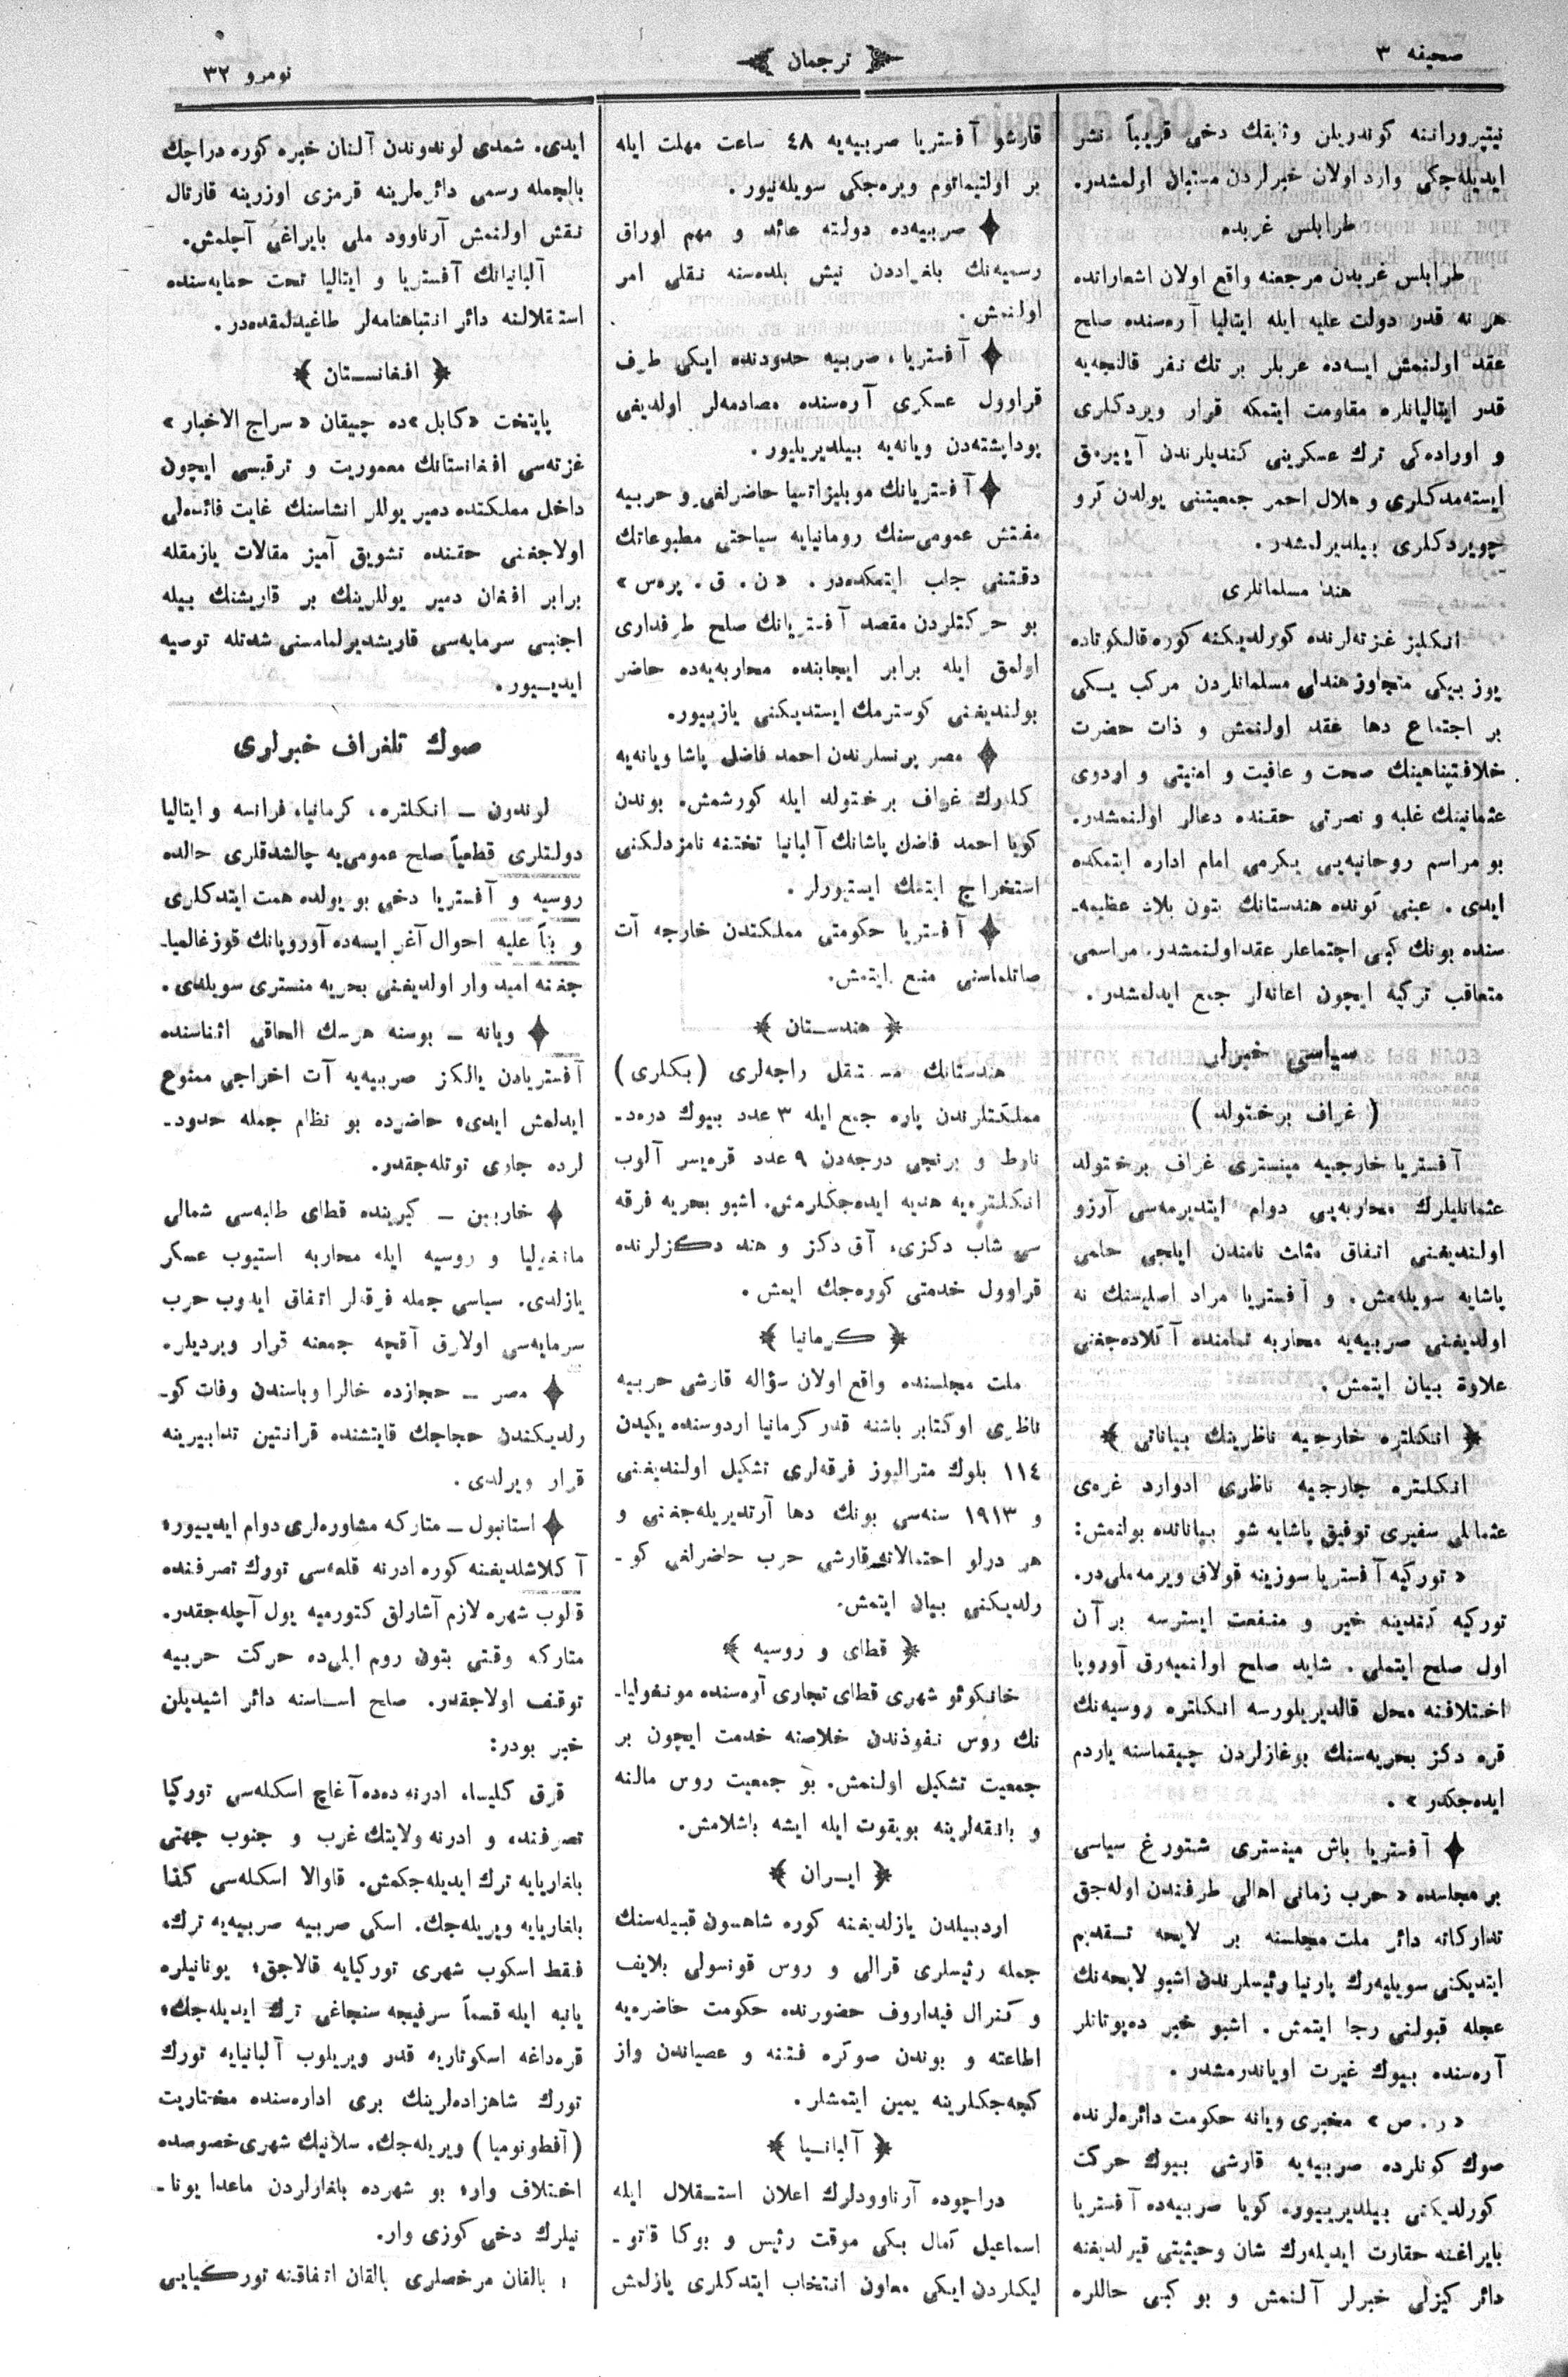 صحیفه ٣
ترجمان
نومرو ٣٢
نیتپرورانه کوندریلن وثایقك دخی قریباً نشر
ایدیله‌جکی وارد اولان خبرلردن مستبان اولمشدر.
طرابلس غربده
طرابلس غربدن مرجعنه واقع اولان اشعاراتده
هر نه قدر دولت علیه ایله ایتالیا آره‌سنده صلح
عقد اولنمش ایسه‌ده عربلر بر تك نفر قالنجه‌یه
قدر ایتالیانلره مقاومت ایتمکه قرار ویردکلری
و اوراده‌کی ترك عسکرینی کندیلرندن آییرمق
ایسته‌مدکلری و هلال احمر جمعیتنی یولدن کرو
چویردکلری بیلدیرلمشدر.
هند مسلمانلری
انکلیز غزته‌لرنده کورلدیکنه کوره قالکوتاده
یوز بیکی متجاوز هندلی مسلمانلردن مرکب یکی
بر اجتماع دها عقد اولنمش و ذات حضرت
خلافتپناهینك صحت و عافیت و امنیتی و اردوی
عثمانینك غلبه و نصرتی حقنده دعالر اولنمشدر.
بو مراسم روحانیه‌یی یکرمی امام اداره ایتمکده
ایدی. عینی کونده هندستانك بتون بلاد عظیمه-
سنده بونك کبی اجتماعلر عقد اولنمشدر. مراسمی
متعاقب ترکیه ایچون اعانه‌لر جمع ایدلمشدر.
سیاسی خبرلر
( غراف برختولد )
آفستریا خارجیه مینستری غراف برختولد
عثمانلیلرك محاربه‌یی دوام ایتدیرمه‌سی آرزو
اولندیغنی اتفاق مثلث نامندن ایلچی حلمی
پاشایه سویله‌مش. و آفستریا مراد اصلیسنك نه
اولدیغنی صربیه‌یه محاربه تمامنده آکلاده‌جغنی
علاوة بیان ایتمش.
﴿ انکلتره خارجیه ناظرینك بیاناتی ﴾
انکلتره خارجیه ناظری ادوارد غره‌ی
عثمانلی سفیری توفیق پاشایه شو بیاناتده بولنمش:
« تورکیه آفستریا سوزینه قولاق ویرمه‌ملی‌در.
تورکیه کندینه خیر و منفعت ایسترسه بر آن
اول صلح ایتملی. شاید صلح اولنمیه‌رق آوروپا
اختلافنه محل قالدیریلورسه انکلتره روسیه‌نك
قره دکز بحریه‌سنك بوغازلردن چیقماسنه یاردم
ایده‌جکدر ».
آفستریا باش مینستری شتورغ سیاسی
بر مجلسده « حرب زمانی اهالی طرفندن اوله‌جق
تدارکاته دائر ملت مجلسنه بر لایحه تقدیم
ایتدیکنی سویلیه‌رك پارتیا رئیسلرندن اشبو لایحه‌نك
عجله قبولنی رجا ایتمش. اشبو خبر ده‌پوتاتلر
آره‌سنده بیوك غیرت اویاندرمشدر.
« ر. ص » مخبری ویانه حکومت دائره‌لرنده
صوك کونلرده صربیه‌یه قارشی بیوك حرکت
کورلدیکنی بیلدیریيور. کویا صربیه‌ده آفستریا
بایراغنه حقارت ایدیله‌رك شان وحیثیتی قیرلدیغنه
دائر کیزلی خبرلر آلنمش و بو کبی حاللره
قارشو آفستریا صربیه‌یه ٤٨ ساعت مهلت ایله
بر اولتیماتوم ویره‌جکی سویله‌نیور.
صربیه‌ده دولته عائد و مهم اوراق
رسمیه‌نك بلغراددن نیش بلده‌سنه نقلی امر
اولنمش.
آفستریا، صربیه حدودنده ایکی طرف
قراوول عسکری آره‌سنده مصادمه‌لر اولدیغی
بوداپشته‌دن ویانه‌یه بیلدیریلیور.
آفستریانك موبلیزاتسیا حاضرلغی و حربیه
مفتش عمومی‌سنك رومانیایه سیاحتی مطبوعاتك
دقتنی جلب ایتمکده‌در. « ن. ق. پره‌س »
بو حرکتلردن مقصد آفستریانك صلح طرفداری
اولمق ایله برابر ایجابنده محاربه‌یه‌ده حاضر
بولندیغنی کوسترمك ایستدیکنی یازییور.
مصر پرنسلرندن احمد فاضل پاشا ویانه‌یه
کلەرك غراف برختولد ایله کورشمش. بوندن
کویا احمد فاضل پاشانك آلبانیا تختنه نامزدلکنی
استخراج ایتمك ایستیورلر.
آفستریا حکومتی مملکتدن خارجه آت
صاتلماسنی منع ایتمش.
﴿ هندستان ﴾
هندستانك مستقل راجه‌لری (بکلری)
مملکتلرندن پاره جمع ایله ٣ عدد بیوك دره‌د-
ناوط و برنجی درجه‌دن ٩ عدد قره‌یسر آلوب
انکلتره‌یه هدیه ایده‌جکلرمش. اشبو بحریه فرقه
سی شاب دکزی، آق دکز و هند دکزلرنده
قراوول خدمتی کوره‌جك ایمش.
﴿ کرمانیا ﴾
ملت مجلسنده واقع اولان سؤاله قارشی حربیه
ناظری اوکتابر باشنه قدر کرمانیا اردوسنده یکیدن
١١٤ بلوك مترالیوز فرقه‌لری تشکیل اولندیغنی
و ١٩١٣ سنه‌سی بونك دها آرتدیریله‌جغنی و
هر درلو احتمالاته قارشی حرب حاضرلغی کو-
رلدیکنی بیان ایتمش.
﴿ قطای و روسیه ﴾
خانکوئو شهری قطای تجاری آره‌سنده مونغولیا-
نك روس نفوذندن خلاصنه خدمت ایچون بر
جمعیت تشکیل اولنمش. بو جمعیت روس مالنه
و بانقه‌لرینه بویقوت ایله ایشه باشلامش.
﴿ ایران ﴾
اردبیلدن یازلدیغنه کوره شاهسون قبیله‌سنك
جمله رئیسلری قرالی و روس قونسولی بلایف
و کنرال فیداروف حضورنده حکومت حاضره‌یه
اطاعته و بوندن صوکره فتنه و عصیاندن واز
کچه‌جکلرینه یمین ایتمشلر.
﴿ آلبانیا ﴾
دراچوده آرناوودلرك اعلان استقلال ایله
اسماعیل کمال بکی موقت رئیس و بوکا قاتو-
لیکلردن ایکی معاون انتخاب ایتدکلری یازلمش
ایدی. شمدی لوندوندن آلنان خبره کوره دراچك
بالجمله رسمی دائره‌لرینه قرمزی اوزرینه قارتال
نقش اولنمش آرناوود ملی بایراغی آچلمش.
آلبانیانك آفستریا و ایتالیا تحت حمایه‌سنده
استقلالنه دائر انتباهنامه‌لر طاغیدلمقده‌در.
﴿ افغانستان ﴾
پایتخت «کابل»ده چیقان «سراج الاخبار»
غزته‌سی افغانستانك معموریت و ترقیسی ایچون
داخل مملکتده دمیر یوللر انشاسنك غایت فائده‌لی
اولاجغنی حقنده تشویق آمیز مقالات یازمقله
برابر افغان دمیر یوللرینك بر قاریشنك بیله
اجنبی سرمایه‌سی قاریشدیرلمامسنی شدتله توصیه
ایدییور.
صوك تلغراف خبرلری
لوندون ـ انکلتره، کرمانیا، فرانسه و ایتالیا
دولتلری قطعیاً صلح عمومی‌یه چالشدقلری حالده
روسیه و آفستریا دخی بو یولده همت ایتدکلری
و بناً علیه احوال آغر ایسه‌ده آوروپانك قوزغالمیا-
جغنه امید وار اولدیغنی بحریه منستری سویلدی.
ویانه ـ بوسنه هرسك الحاقی اثناسنده
آفستریادن یالکز صربیه‌یه آت اخراجی ممنوع
ایدلمش ایدی؛ حاضرده بو نظام جمله حدود-
لرده جاری توتله‌جقدر.
خاربین ـ کیرینده قطای طلبه‌سی شمالی
مانغولیا و روسیه ایله محاربه استیوب عسکر
یازلدی. سیاسی جمله فرقه‌لر اتفاق ایدوب حرب
سرمایه‌سی اولارق آقچه جمعنه قرار ویردیلر.
مصر ـ حجازده خالرا وباسندن وفات کو-
رلدیکندن حجاجك قایتشنده قرانتین تدابیرینه
قرار ویرلدی.
استانبول ـ متارکه مشاوره‌لری دوام ایدییور؛
آکلاشلدیغنه کوره ادرنه قلعه‌سی تورك تصرفنده
قالوب شهره لازم آشارلق کتورمیه یول آچله‌جقدر.
متارکه وقتی بتون روم ایلی‌ده حرکت حربیه
توقف اولاجقدر. صلح اساسنه دائر اشیدیلن
خبر بودر:
قرق کلیسا، ادرنه، ده‌ده آغاج اسکله‌سی تورکیا
تصرفنده و ادرنه ولایتك غرب و جنوب جهتی
بلغاریایه ترك ایدیله‌جکمش. قاوالا اسکله‌سی کذا
بلغاریایه ویریله‌جك. اسکی صربیه صربیه‌یه ترك،
فقط اسکوب شهری تورکیایه قالاجق؛ یونانیلره
یانیه ایله قسماً سرفیجه سنجاغی ترك ایدیله‌جك؛
قره‌داغه اسکوتاریه قدر ویریلوب آلبانیایه تورك
تورك شاهزاده‌لرینك بری اداره‌سنده مختاریت
(آفطونومیا) ویریله‌جك. سلانیك شهری خصوصده
اختلاف وار؛ بو شهرده بلغارلردن ماعدا یونا-
نیلرك دخی کوزی وار.
بالقان مرخصلری بالقان اتفاقنه تورکیایی